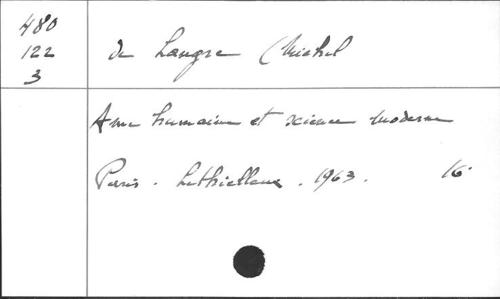 480
122
3
de Langre (Michel
Ame humaine et science moderne
Paris. Lethielleux. 1963. 16